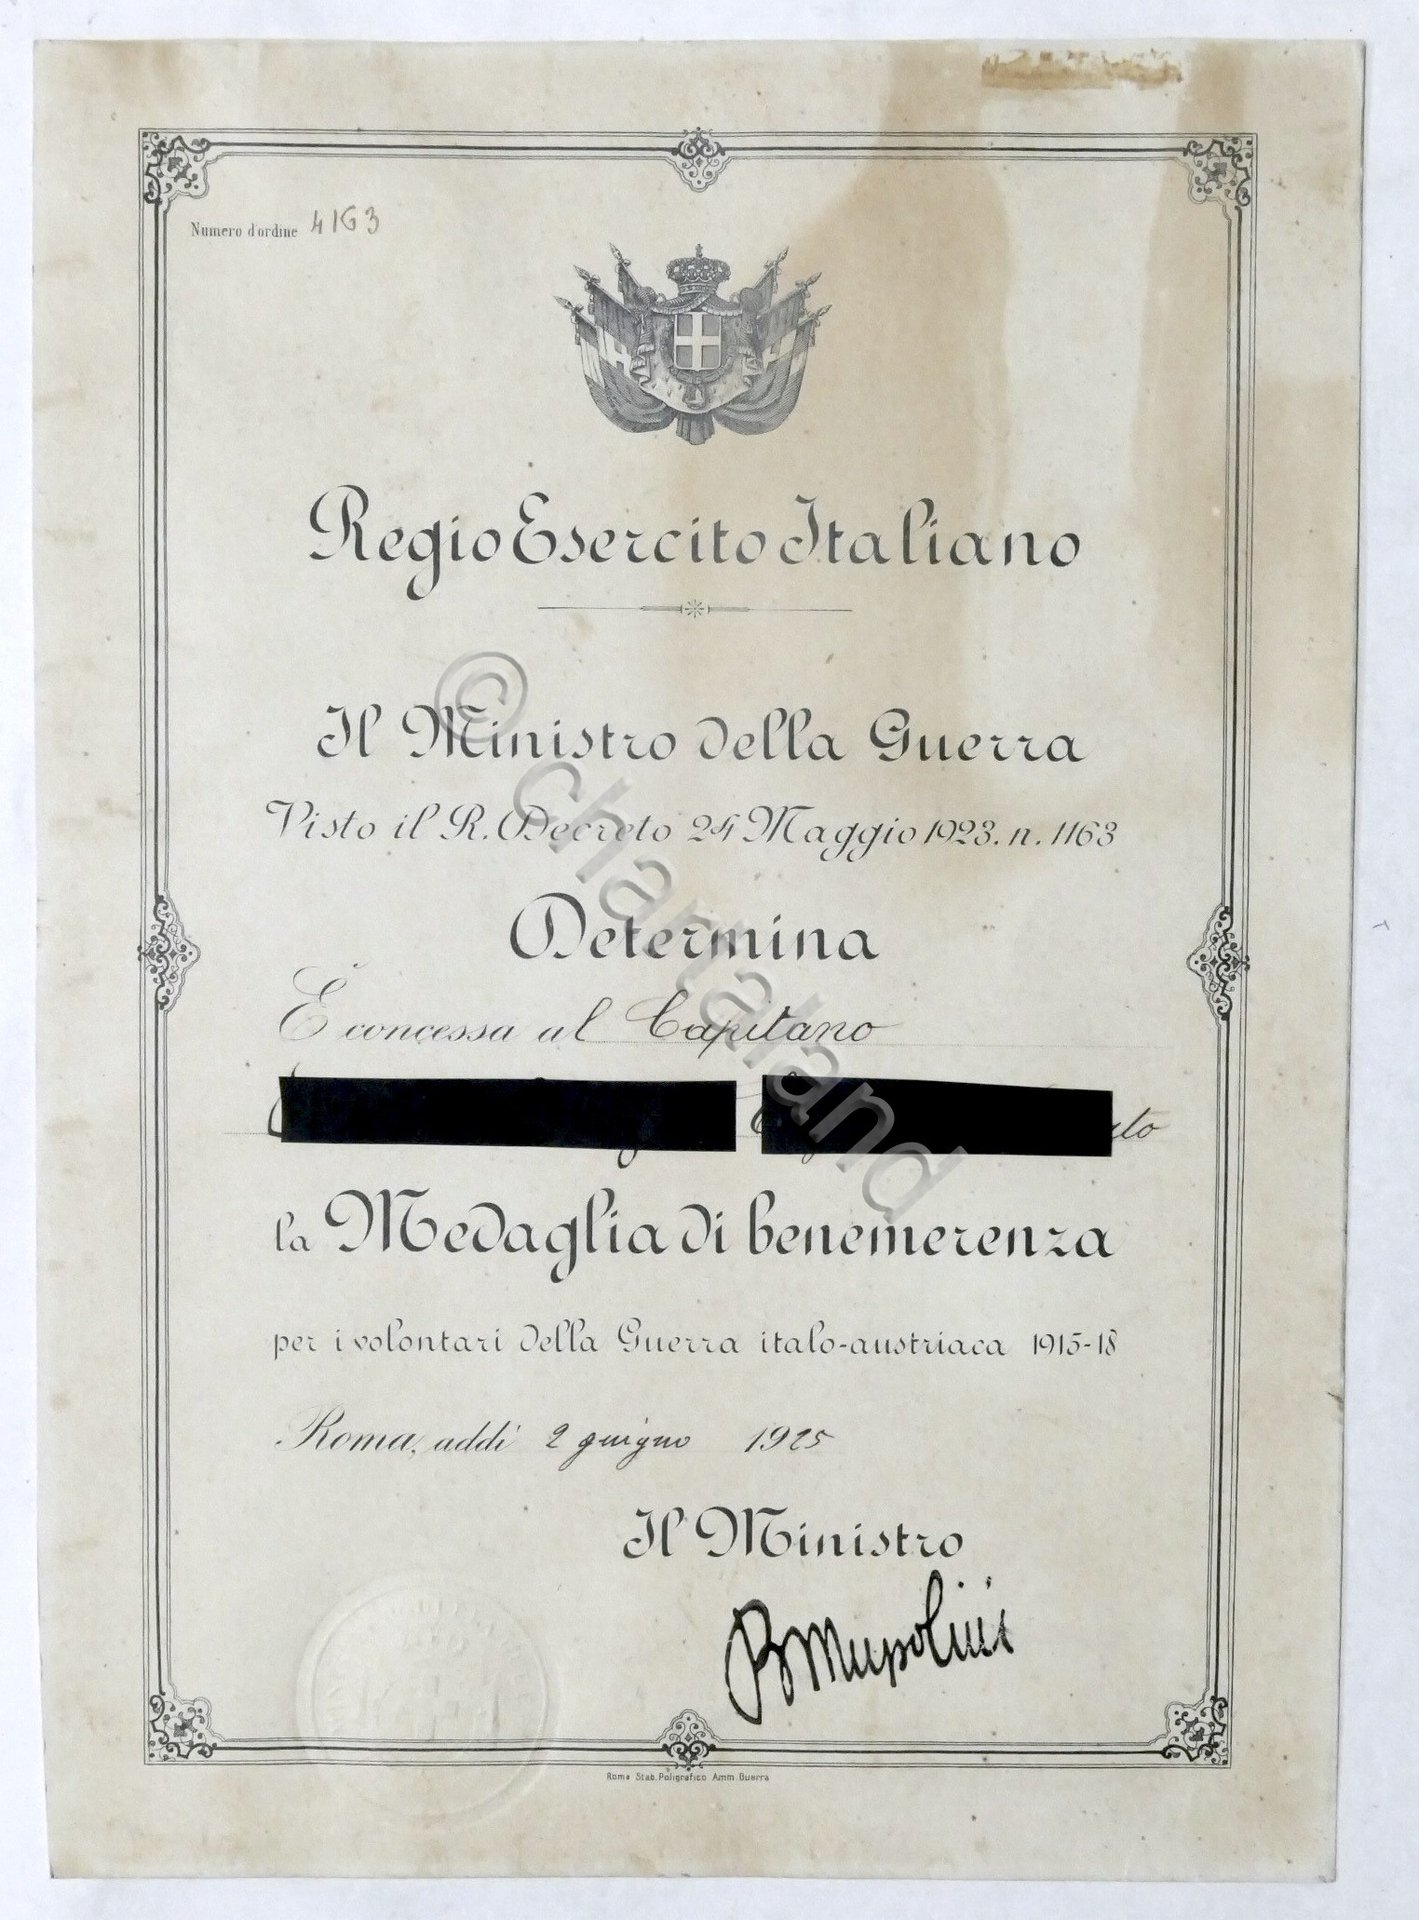 Numero d'ordine 4163
Regio Esercito Italiano
Il Ministro della Guerra
Visto il R. Decreto 24 Maggio 1923. n. 1163
Determina
È concessa al Capitano
la Medaglia di benemerenza
per i volontari della Guerra italo-austriaca 1915-18
Roma, addì 2 giugno 1925
Il Ministro
B Mussolini
Roma Stab. Poligrafico Amm. Guerra
© chartaland